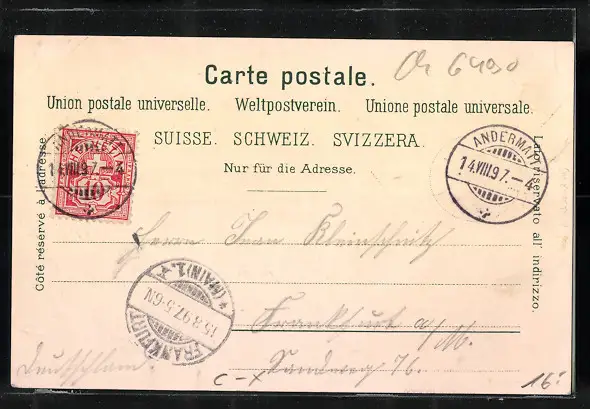 Ch 6490
Carte postale.
Union postale universelle. Weltpostverein. Unione postale universale.
SUISSE. SCHWEIZ. SVIZZERA.
Nur für die Adresse.
Côté réservé à l'adresse.
Lato riservato all' indirizzo.
HELVETIA
10
14.VIII.97.-4
ANDERMATT
14.VIII.97.-4
Herrn Jean Kleinschnitz
FRANKFURT * (MAIN) 1. *
15.8.97.5-6N
Frankfurt a/M.
Sandweg 76.
Deutschland.
C - X
16: